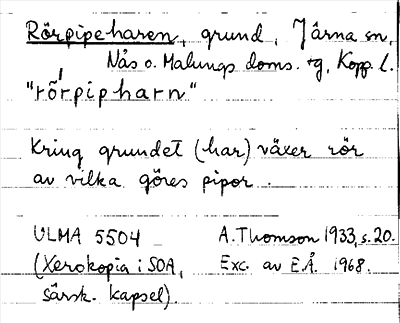 Rörpipeharen, grund, Järna sn,
Nås o. Malungs doms. tg, Kopp. l.
"rö́rpipharn"
Kring grundet (har) växer rör
av vilka göres pipor.
ULMA 5504 A. Thomson 1933, s. 20.
(Xerokopia i SOA, Exc. av E.Å. 1968.
särsk. kapsel).